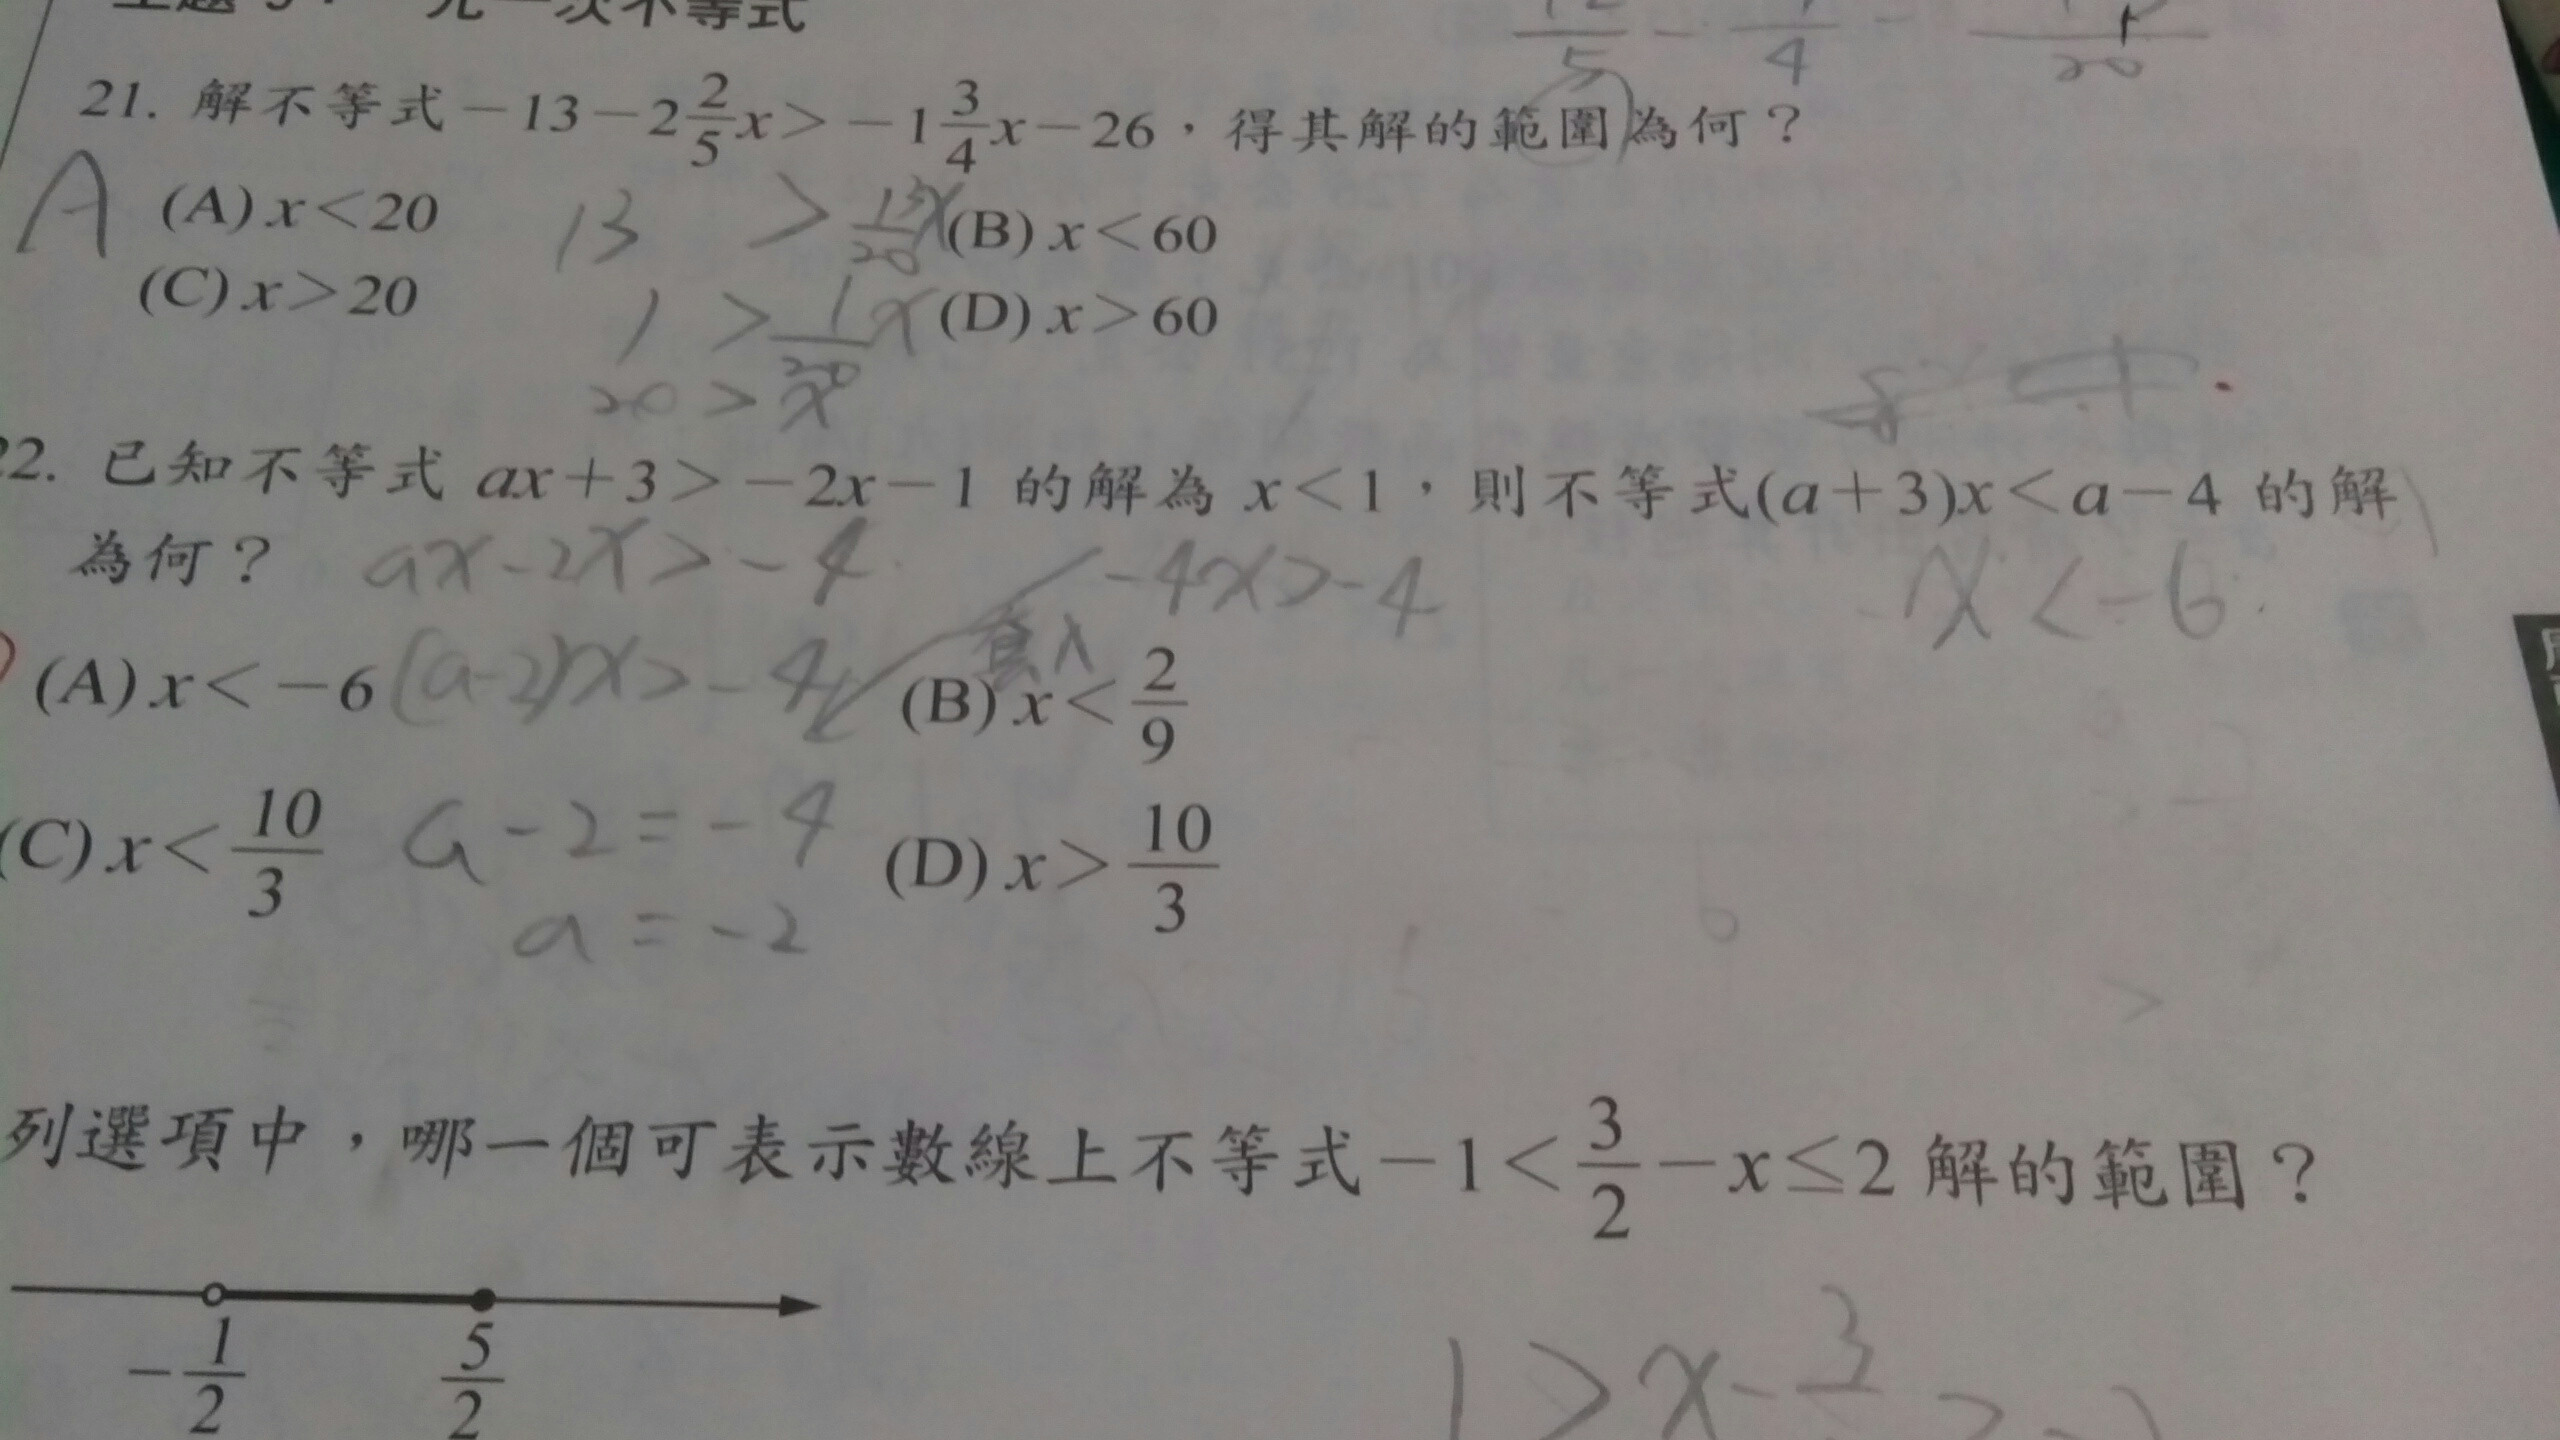 一次不等式
12/5 - 7/4 -
5 4 20
21. 解不等式－13－2 2/5 x＞－1 3/4 x－26，得其解的範圍為何？
A (A) x＜20 13 > 13/20 x (B) x＜60
(C) x＞20 1 > 1/20 x (D) x＞60
20 > x
22. 已知不等式 ax＋3＞－2x－1 的解為 x＜1，則不等式(a＋3)x＜a－4 的解
為何？ ax-2x>-4 -4x>-4 x<-6
(A) x＜－6 (a-2)x>-4 套入 (B) x＜2/9
(C) x＜10/3 a-2=-4 (D) x＞10/3
a=-2
列選項中，哪一個可表示數線上不等式－1＜3/2－x≤2 解的範圍？
-1/2 5/2
1 > x - 3